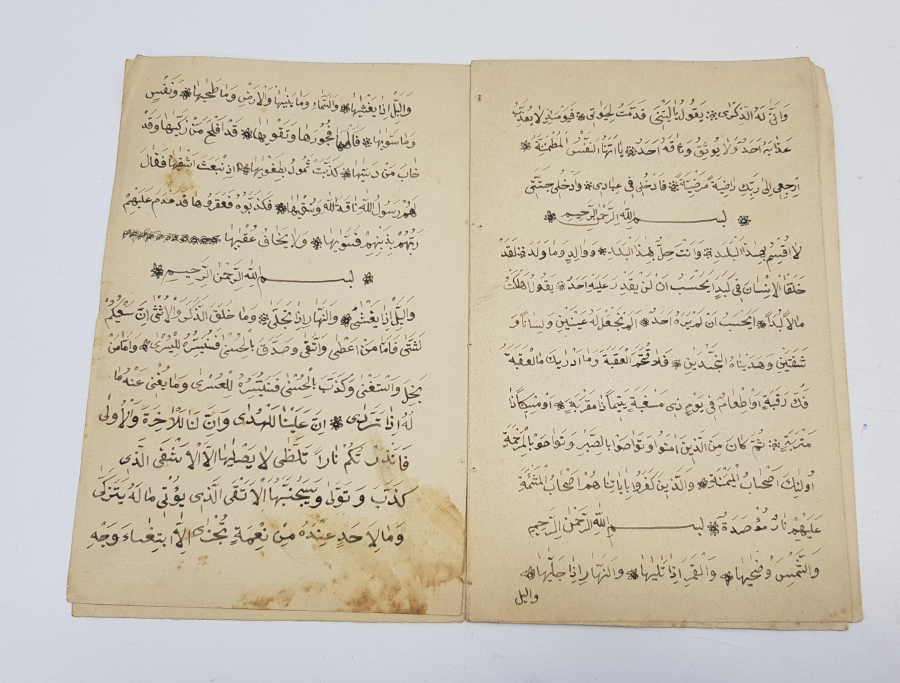 وَاَنّٰى لَهُ الذِّكْرٰى ۞ يَقُولُ يَالَيْتَنٖى قَدَّمْتُ لِحَيَاتٖى ۞ فَيَوْمَئِذٍ لَا يُعَذِّبُ
عَذَابَهُ اَحَدٌ وَلَا يُوثِقُ وَثَاقَهُ اَحَدٌ ۞ يَا اَيَّتُهَا النَّفْسُ الْمُطْمَئِنَّةُ ۞
اِرْجِعٖى اِلٰى رَبِّكِ رَاضِيَةً مَرْضِيَّةً ۞ فَادْخُلٖى فٖى عِبَادٖى ۞ وَادْخُلٖى جَنَّتٖى
۞ بِسْمِ اللّٰهِ الرَّحْمٰنِ الرَّحٖيمِ ۞
لَا اُقْسِمُ بِهٰذَا الْبَلَدِ ۞ وَاَنْتَ حِلٌّ بِهٰذَا الْبَلَدِ ۞ وَوَالِدٍ وَمَا وَلَدَ ۞ لَقَدْ
خَلَقْنَا الْاِنْسَانَ فٖى كَبَدٍ اَيَحْسَبُ اَنْ لَنْ يَقْدِرَ عَلَيْهِ اَحَدٌ ۞ يَقُولُ اَهْلَكْتُ
مَالًا لُبَدًا ۞ اَيَحْسَبُ اَنْ لَمْ يَرَهُ اَحَدٌ ۞ اَلَمْ نَجْعَلْ لَهُ عَيْنَيْنِ وَلِسَانًا وَ
شَفَتَيْنِ وَهَدَيْنَاهُ النَّجْدَيْنِ ۞ فَلَا اقْتَحَمَ الْعَقَبَةَ وَمَا اَدْرٰيكَ مَا الْعَقَبَةُ
فَكُّ رَقَبَةٍ اَوْ اِطْعَامٌ فٖى يَوْمٍ ذٖى مَسْغَبَةٍ يَتٖيمًا ذَا مَقْرَبَةٍ ۞ اَوْ مِسْكٖينًا ذَا
مَتْرَبَةٍ ۞ ثُمَّ كَانَ مِنَ الَّذٖينَ اٰمَنُوا وَتَوَاصَوْا بِالصَّبْرِ وَتَوَاصَوْا بِالْمَرْحَمَةِ
اُولٰئِكَ اَصْحَابُ الْمَيْمَنَةِ ۞ وَالَّذٖينَ كَفَرُوا بِاٰيَاتِنَا هُمْ اَصْحَابُ الْمَشْئَمَةِ
عَلَيْهِمْ نَارٌ مُؤْصَدَةٌ ۞ بِسْمِ اللّٰهِ الرَّحْمٰنِ الرَّحٖيمِ
وَالشَّمْسِ وَضُحٰيهَا ۞ وَالْقَمَرِ اِذَا تَلٰيهَا ۞ وَالنَّهَارِ اِذَا جَلّٰيهَا ۞
والیل
وَالَّيْلِ اِذَا يَغْشٰيهَا ۞ وَالسَّمَاءِ وَمَا بَنٰيهَا وَالْاَرْضِ وَمَا طَحٰيهَا ۞ وَنَفْسٍ
وَمَا سَوّٰيهَا ۞ فَاَلْهَمَهَا فُجُورَهَا وَتَقْوٰيهَا ۞ قَدْ اَفْلَحَ مَنْ زَكّٰيهَا وَقَدْ
خَابَ مَنْ دَسّٰيهَا ۞ كَذَّبَتْ ثَمُودُ بِطَغْوٰيهَا ۞ اِذِ انْبَعَثَ اَشْقٰيهَا فَقَالَ
لَهُمْ رَسُولُ اللّٰهِ نَاقَةَ اللّٰهِ وَسُقْيٰهَا ۞ فَكَذَّبُوهُ فَعَقَرُوهَا فَدَمْدَمَ عَلَيْهِمْ
رَبُّهُمْ بِذَنْبِهِمْ فَسَوّٰيهَا ۞ وَلَا يَخَافُ عُقْبٰيهَا ۞
۞ بِسْمِ اللّٰهِ الرَّحْمٰنِ الرَّحٖيمِ ۞
وَالَّيْلِ اِذَا يَغْشٰى ۞ وَالنَّهَارِ اِذَا تَجَلّٰى ۞ وَمَا خَلَقَ الذَّكَرَ وَالْاُنْثٰى اِنَّ سَعْيَكُمْ
لَشَتّٰى فَاَمَّا مَنْ اَعْطٰى وَاتَّقٰى وَصَدَّقَ بِالْحُسْنٰى فَسَنُيَسِّرُهُ لِلْيُسْرٰى ۞ وَاَمَّا مَنْ
بَخِلَ وَاسْتَغْنٰى وَكَذَّبَ بِالْحُسْنٰى فَسَنُيَسِّرُهُ لِلْعُسْرٰى وَمَا يُغْنٖى عَنْهُ مَا
لُهُ اِذَا تَرَدّٰى ۞ اِنَّ عَلَيْنَا لَلْهُدٰى وَاِنَّ لَنَا لَلْاٰخِرَةَ وَالْاُولٰى
فَاَنْذَرْتُكُمْ نَارًا تَلَظّٰى لَا يَصْلٰيهَا اِلَّا الْاَشْقَى الَّذٖى
كَذَّبَ وَتَوَلّٰى وَسَيُجَنَّبُهَا الْاَتْقَى الَّذٖى يُؤْتٖى مَالَهُ يَتَزَكّٰى
وَمَا لِاَحَدٍ عِنْدَهُ مِنْ نِعْمَةٍ تُجْزٰى اِلَّا ابْتِغَاءَ وَجْهِ